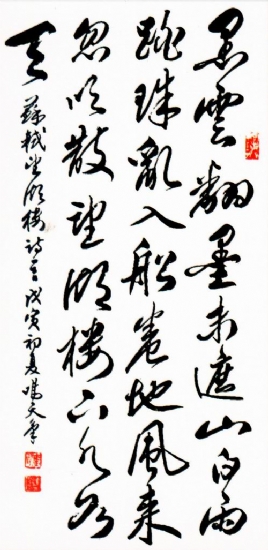 黑雲翻墨未遮山白雨
跳珠亂入船卷地風来
忽吹散望湖樓下水如
天
蘇軾望湖樓詩 戊寅初夏